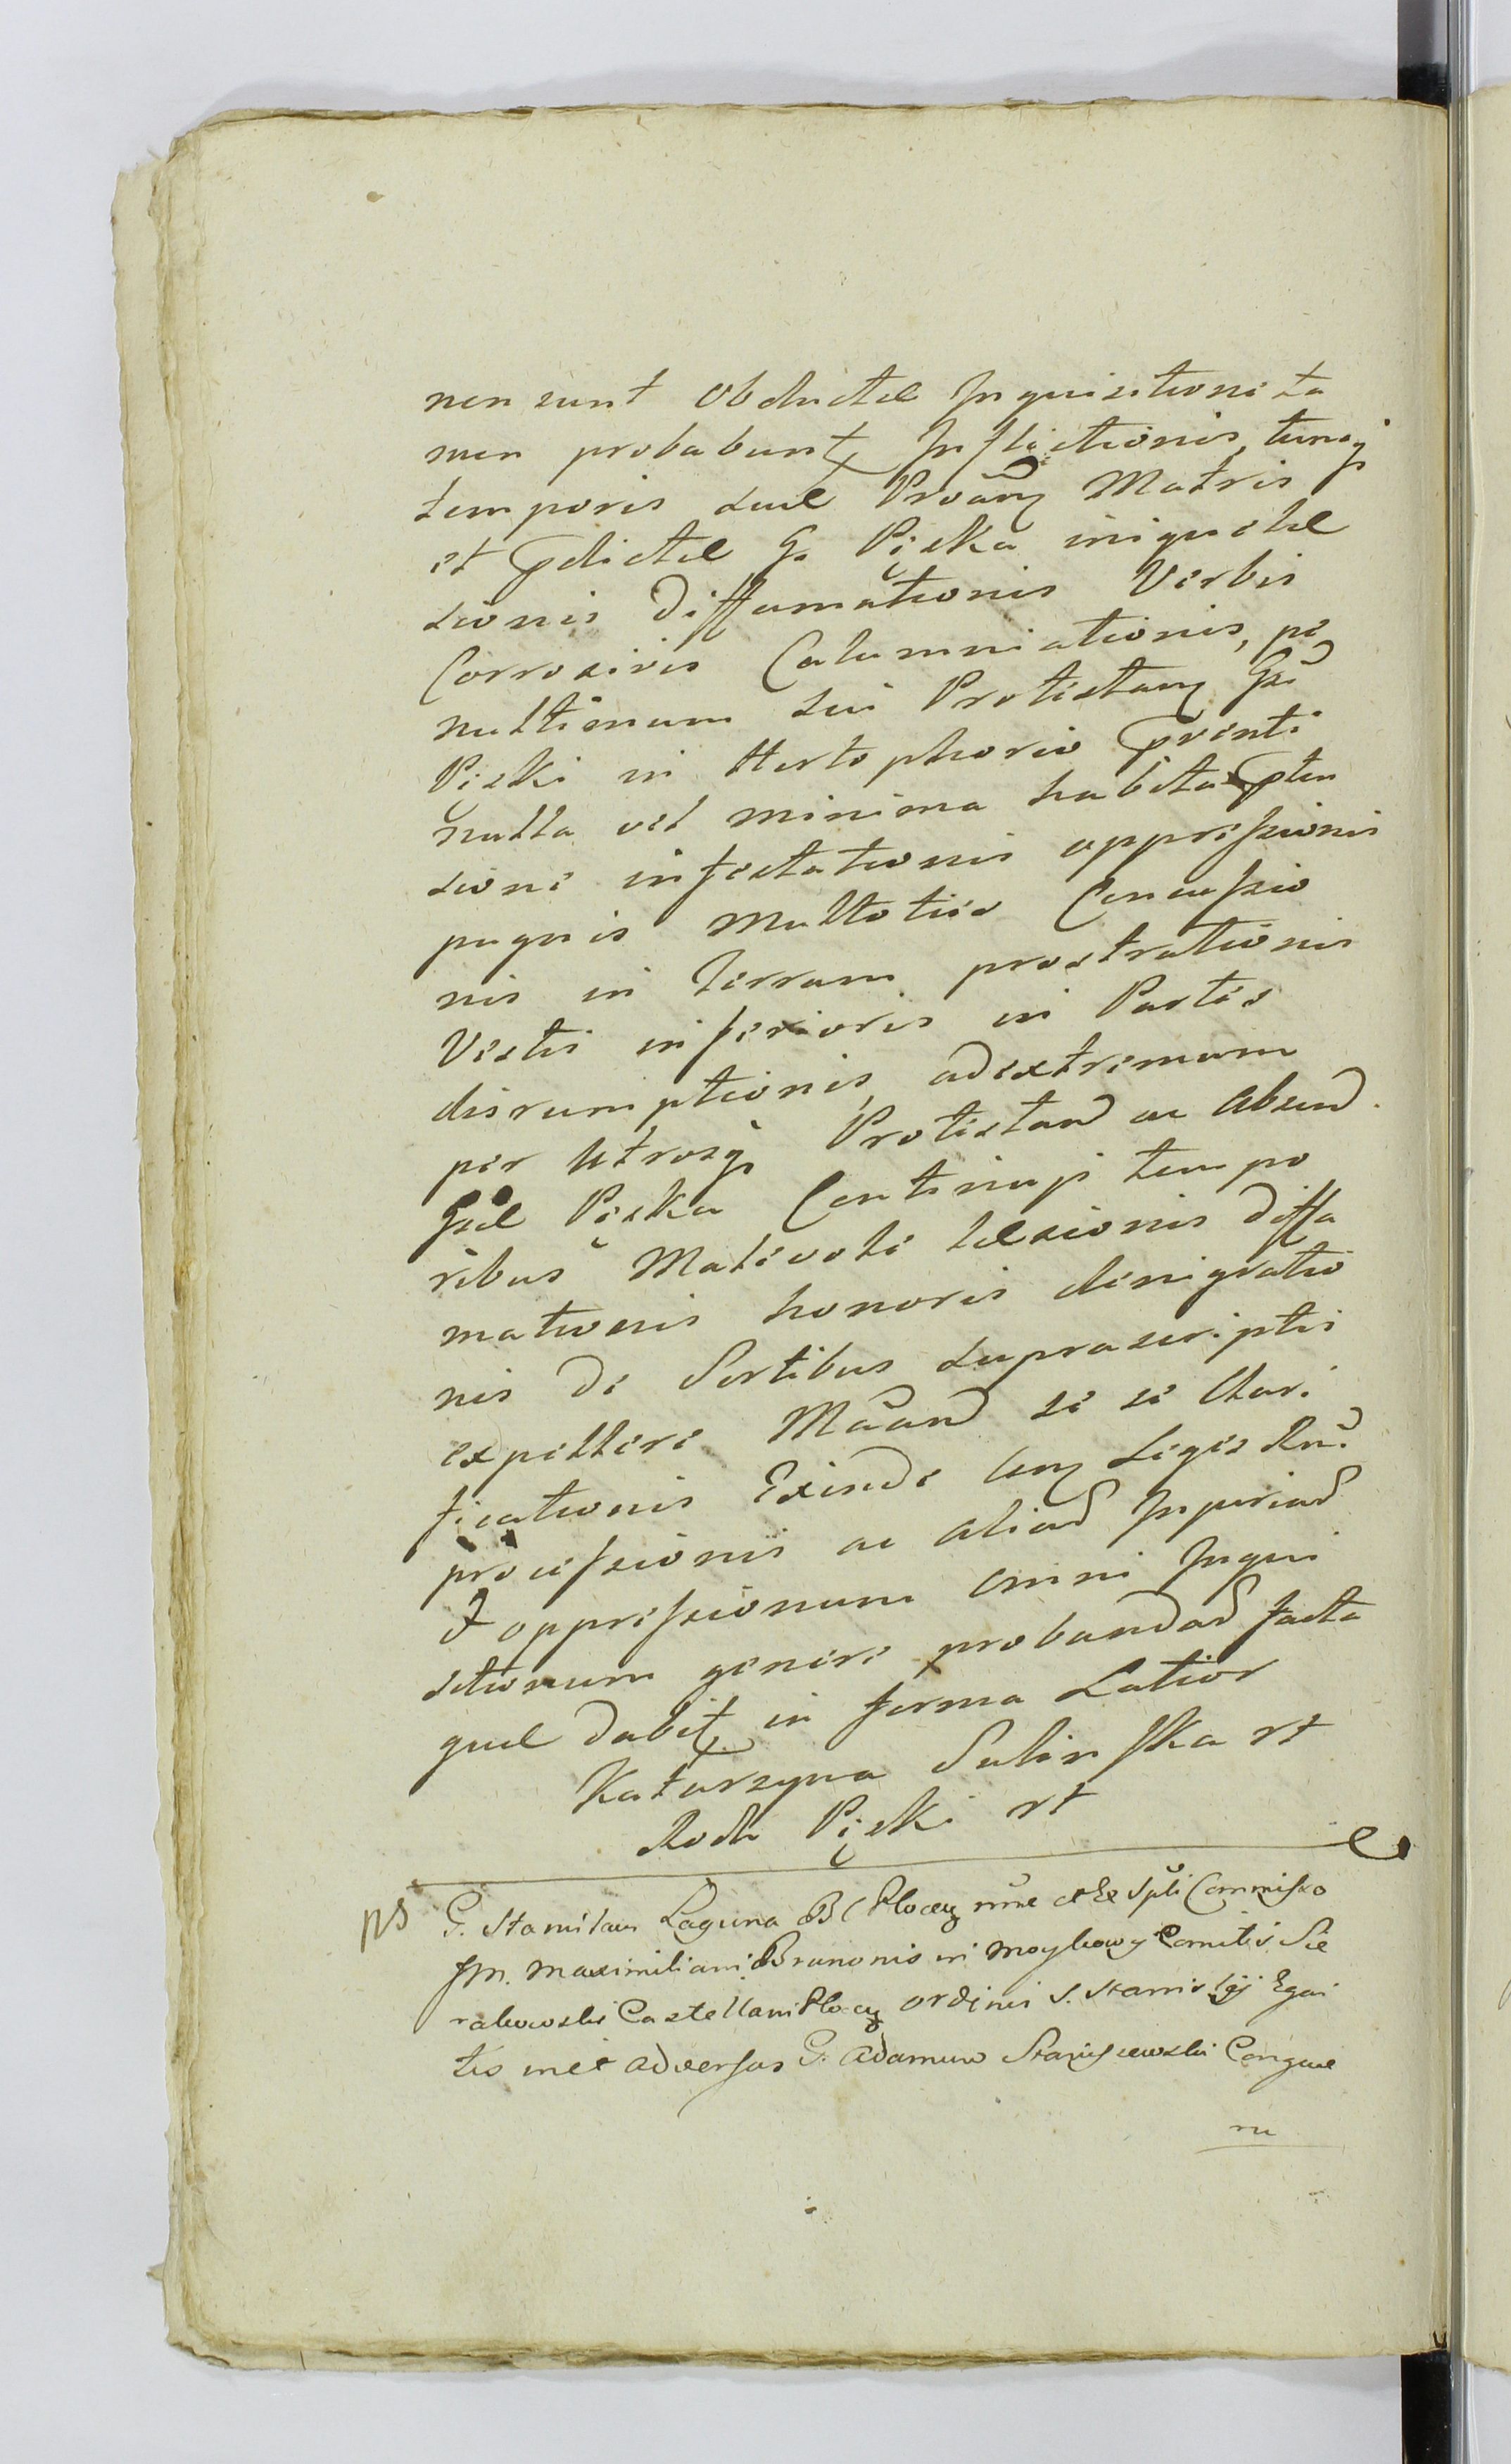 non sunt obductæ Inquisitione ta
men probabunt Inflictionis, tuncq
temporis suæ Proāng Matris
et pdictæ G. Pięska iniquæ læ
sionis Diffamationis Verbis
Corrosivis Calumniationis, pe
nultimum sui Protestang Gsi
Pięski in Hertophorio prænti
nulla vel minima habita pten
sione infestationis oppressionis
pugnis Multoties Concussio
nis in terram prostrationis
Vestis inferioris in Partes
disrumptionis, adextremum
per Utrosq Protestand ac absend.
Gsæ Pięska Continuis tempo
ribus Malevole læsionis diffa
mationis honoris denigratio
nis de Sortibus suprascriptis
expellere Māand se se Chari
ficationis Exinde leng Leges Rni
processionis ac aliad Injuriad
& oppressionum omni Inqui
sitionum genere probandad facta
quæ dabit in forma Latior
Katarzyna Sulinska rt
Roch Pięski rt
ps G. Stanislaus Laguna B C Plocen nne et Ex Spli Commisso
Jm. Maximiliani Brunonis in Moykowy Comitis Sie
rakowski Castellani Plocen ordinis S. Stanislai Equi
tis inet adversus G. Adamum Staniszewski Conquæ
ru